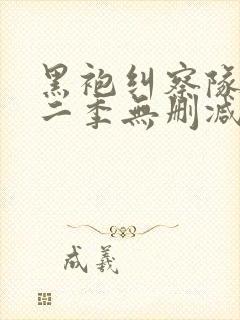 黑袍纠察隊
二季無删减
成羲